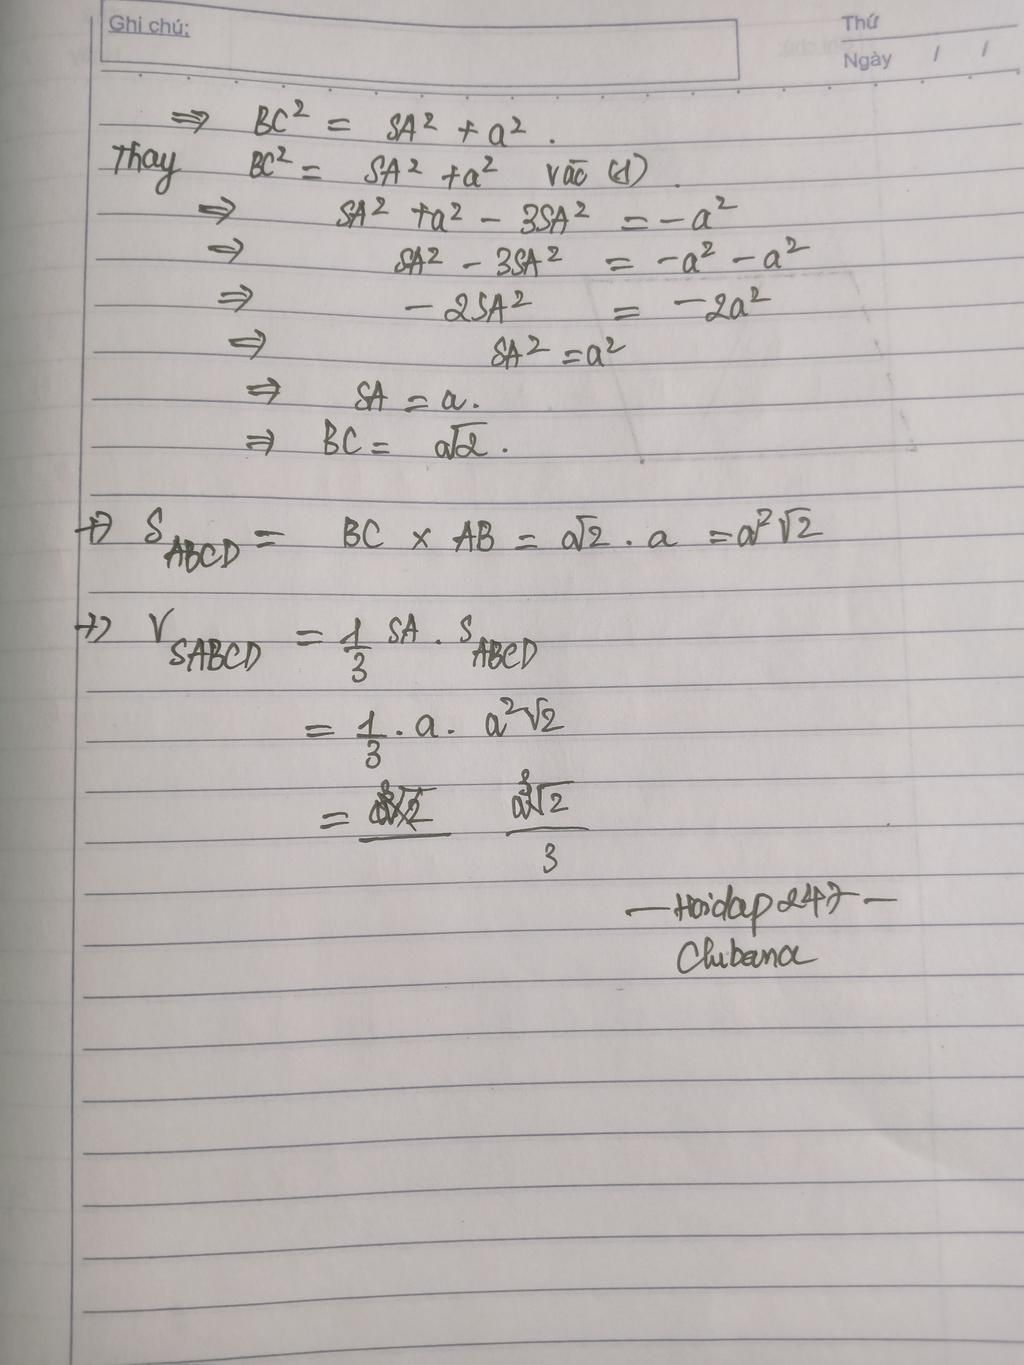 Ghi chú:
Thứ
Ngày / /
⇒ BC² = SA² + a².
Thay BC² = SA² + a² vào (1).
⇒ SA² + a² - 3SA² = -a²
⇒ SA² - 3SA² = -a² - a²
⇒ -2SA² = -2a²
⇒ SA² = a²
⇒ SA = a.
⇒ BC = a√2.
+) S_ABCD = BC × AB = a√2 . a = a²√2
+) V_SABCD = 1/3 SA . S_ABCD
= 1/3 . a . a²√2
= a³√2/3
— Hoidap247 —